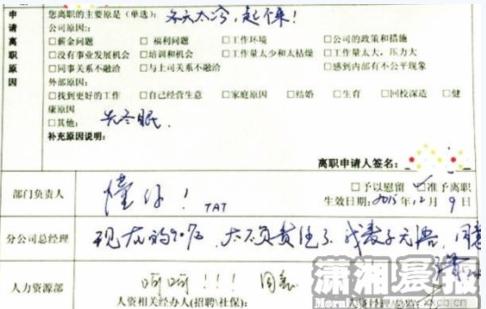 申请离职原因
您离职的主要原是(单选): 冬天太冷,起不来!
公司原因:
□薪金问题 □福利问题 □工作环境 □公司的政策和措施
□没有事业发展机会 □培训和机会 □工作量太少和太枯燥 □工作量太大,压力大
□同事关系不融洽 □与上司关系不融洽 □感到内部有不公平现象
外部原因:
□找到更好的工作 □自己经营生意 □家庭原因 □结婚 □生育 □回校深造 □健
康原因
□其他: 去冬眠.
补充原因说明:
离职申请人签名:
部门负责人 懂你! TAT
□予以慰留 准予离职
生效日期: 2015 12月9日
分公司总经理 现在的90后,太不负责任了,我表示无语,同意
人力资源部 呵呵!!! 同意
人资相关经办人(招聘\社保):
潇湘晨报